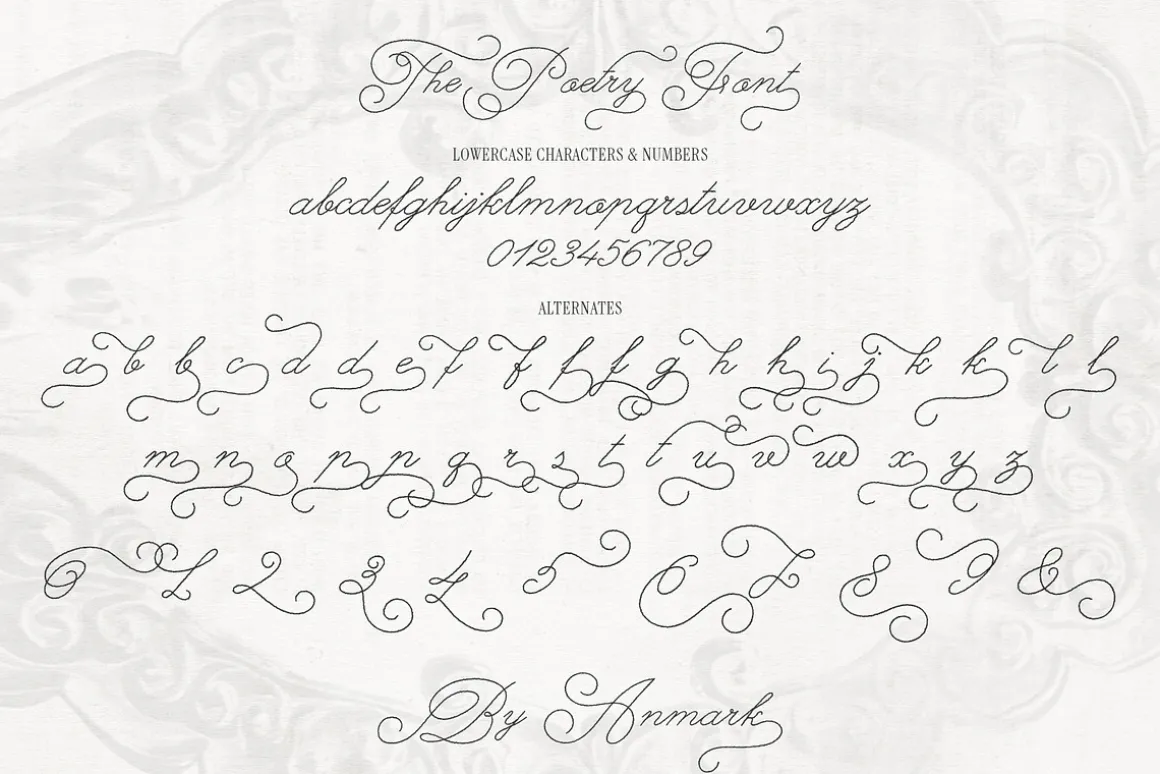 The Poetry Font
LOWERCASE CHARACTERS & NUMBERS
abcdefghijklmnopqrstuvwxyz
0123456789
ALTERNATES
a b b c d d e f f f f g h h i j k k l l
m n o p p q r s t t u v w x y z
0 1 2 3 4 5 6 7 8 9 &
By Anmark